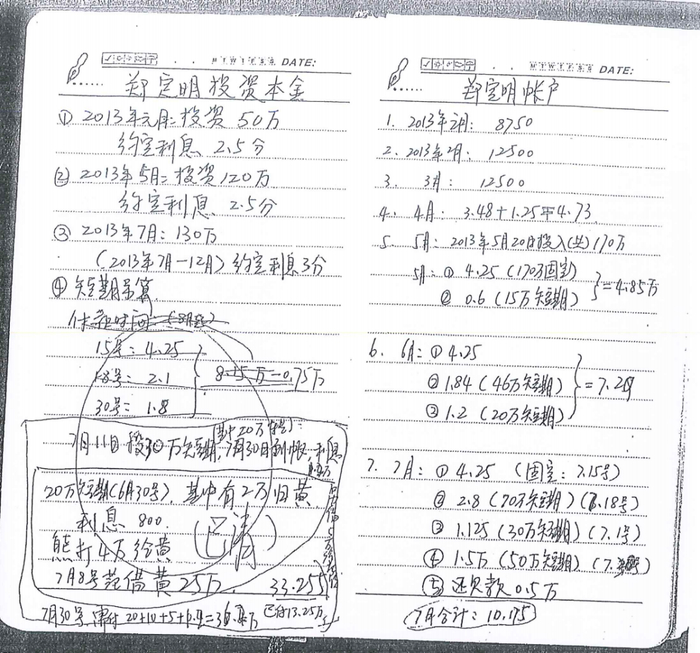 DATE:
郑定明投资本金
① 2013年元月: 投资 50万
约定利息 2.5分
② 2013年5月: 投资120万
约定利息 2.5分
③ 2013年7月: 130万
(2013年7月—12月) 约定利息3分
④ 短期另算
15号: 4.25
18号: 2.1
30号: 1.8
7月11日 万短期, 7月30日到帐, 利息
20万短期(6月30号), 其中有2万归黄
利息 800.
(已清)
熊打4万给黄
7月8号 借黄25万. 33.255
7月30号, 20+10+5+ = 万 已付13.25万
DATE:
郑定明帐户
1. 2013年元月: 8750
2. 2013年2月: 12500
3. 3月: 12500
4. 4月: 3.48+1.25=4.73
5. 5月: 2013年5月20日投入(共)170万
5月: ① 4.25 (170万固定)
② 0.6 (15万短期)
=4.85万
6. 6月: ① 4.25
② 1.84 (46万短期)
③ 1.2 (20万短期)
=7.29
7. 7月: ① 4.25 (固定: 7.15号)
② 2.8 (70万短期) (7.18号)
③ 1.125 (30万短期) (7.1号)
④ 1.5万 (50万短期)
⑤ 还欠款 0.5万
7月合计: 10.175